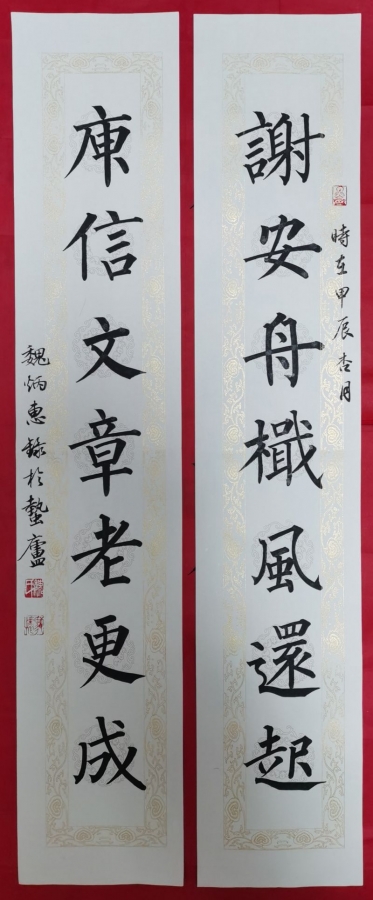 時在甲辰杏月
謝安舟檝風還起
庾信文章老更成
魏炳惠錄於蟄廬